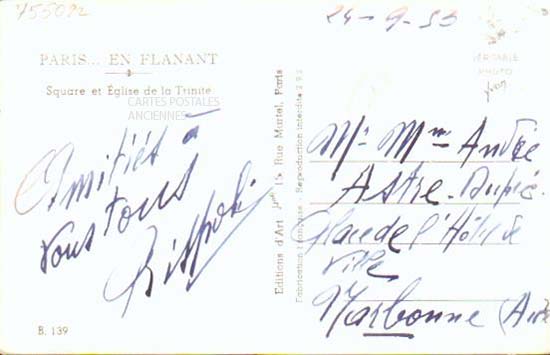 755092
24-9-53
PARIS... EN FLANANT
Square et Église de la Trinité
CARTES POSTALES
ANCIENNES
Amitiés à
vous tous
B. 139
Editions d'Art Yvon, 15 Rue Martel, Paris
Fabrication Française - Reproduction interdite
VÉRITABLE
PHOTO
Yvon
Mr Mme André
Astre-
Place de l'Hôtel de
Ville
Narbonne (Aude